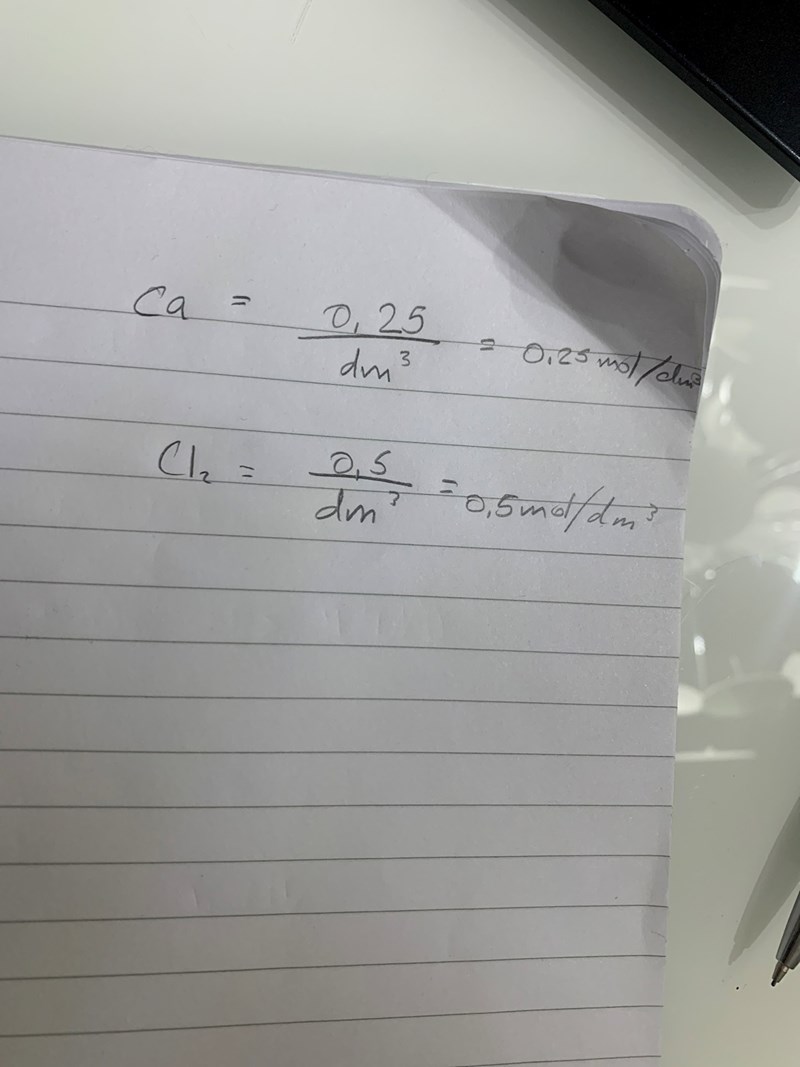 Ca = 0,25 / dm³ = 0.25 mol/dm³
Cl₂ = 0,5 / dm³ = 0,5 mol/dm³